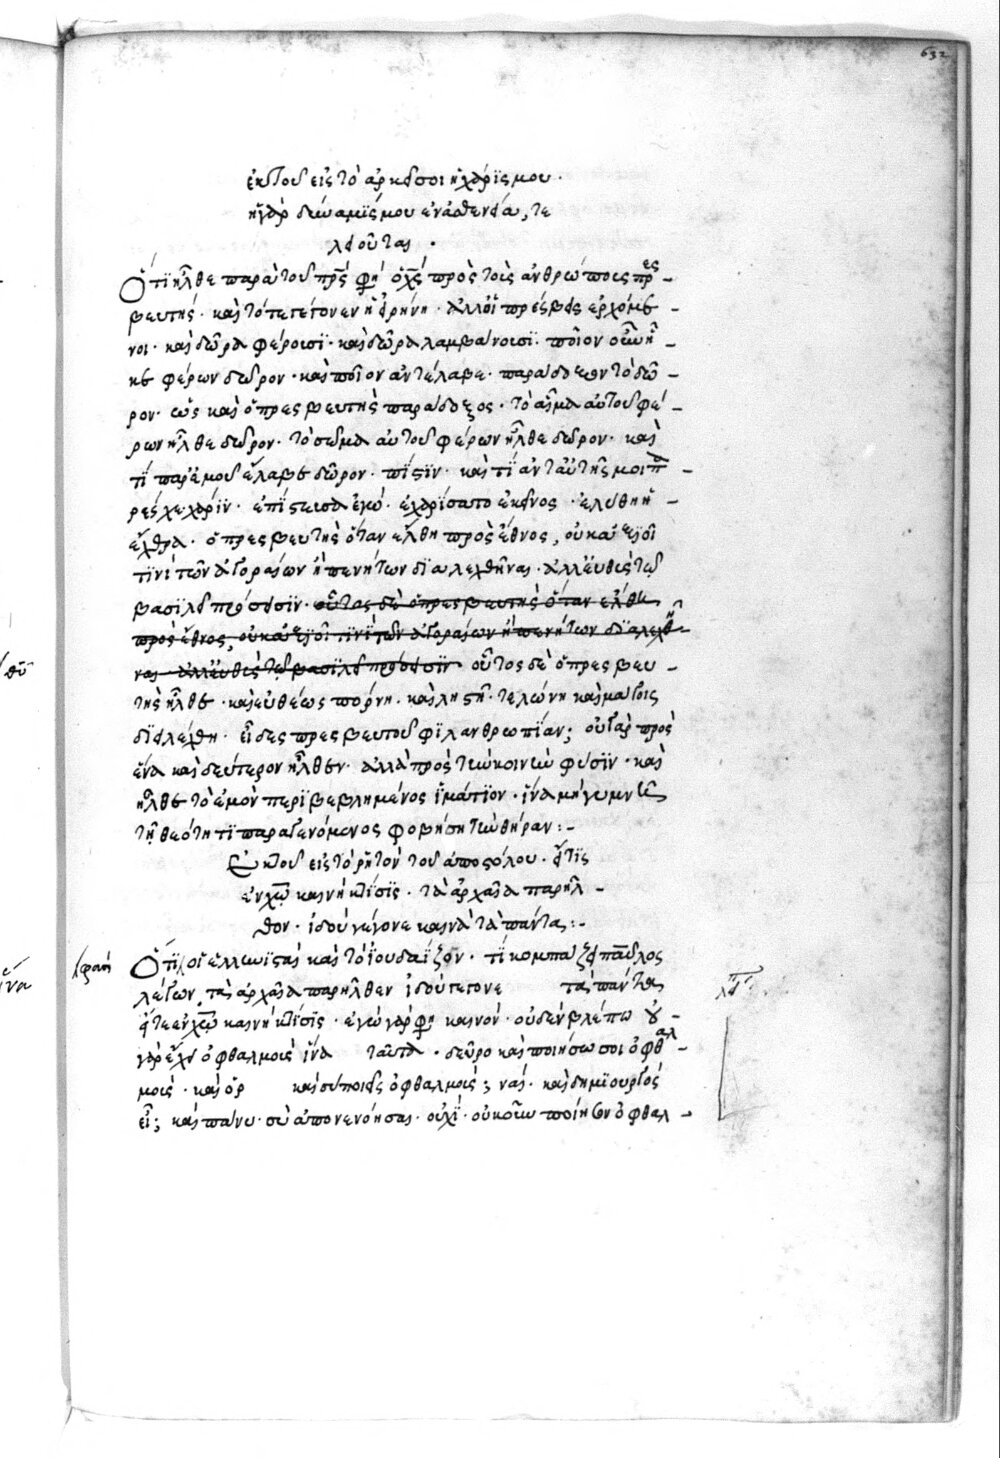 632
ἐκ τοῦ εἰς τὸ ἀρκεῖ σοι ἡ χάρϊς μου.
ἡ γὰρ δύναμϊς μου ἐν ἀσθενεία, τε
λειοῦται.
Ὅτϊ ἦλθε παρὰ τοῦ πρς φη ὁ χς πρὸς τοὺς ἀνθρώπους πρες
βευτής. καὶ τότε γέγονεν ἡ εἰρήνη. ἀλλ' οἱ πρέσβεις ἐρχόμε
νοι. καὶ δῶρα φέρουσϊ. καὶ δῶρα λαμβάνουσϊ. ποῖον οὖν ἧ
κε φέρων δῶρον. καὶ ποῖον ἀντέλαβε. παράδοξον τὸ δῶ
ρον. ὡς καὶ ὁ πρεσβευτὴς παράδοξος. τὸ αἷμα αὐτοῦ φέ
ρων ἦλθε δῶρον. τὸ σῶμα αὐτοῦ φέρων ἦλθε δῶρον. καὶ
τί παρ' ἐμοῦ ἔλαβε δῶρον. πίστϊν. καὶ τί ἀντ' αὐτῆς μοι π
ρέσχε χάρϊν. ἐπίστευσα ἐγώ. ἐχαρίσατο ἐκεῖνος. ἐλύθη ἡ
ἔχθρα. ὁ πρεσβευτὴς ὅταν ἔλθη πρὸς ἔθνος, οὐκ ἀξιοῖ
τϊνὶ τῶν ἀγοραίων ἢ πενήτων δϊαλεχθῆναι. ἀλλ' εὐθὺς τῷ
βασϊλεῖ πρόσεισϊν. οὗτος δὲ ὁ πρεσβευτὴς ὅταν ἔλθη
πρὸς ἔθνος, οὐκ ἀξιοῖ τϊνὶ τῶν ἀγοραίων ἢ πενήτων δϊαλεχθῆ
ναι ἀλλ' εὐθὺς τῷ βασϊλεῖ πρόσεισϊν οὗτος δὲ ὁ πρεσβευ
τὴς ἦλθε. καὶ εὐθέως πόρνη. καὶ ληστῆ. τελώνη καὶ μάγοις
δϊελέχθη. εἶδες πρεσβευτοῦ φϊλανθρωπϊαν; οὐ γὰρ πρὸς
ἕνα καὶ δεύτερον ἦλθεν. ἀλλὰ πρὸς τὴν κοινὴν φύσϊν. καὶ
ἦλθε τὸ ἐμὸν περϊβεβλημένος ἱμάτϊον. ἵνα μὴ γυμνῆ
τῆ θεότητϊ παραγενόμενος φοβήση τὴν θήραν:
Ἐκ τοῦ εἰς τὸ ῥητὸν τοῦ ἀποστόλου. εἴ τϊς
ἐν χω καινὴ κτίσϊς. τὰ ἀρχαῖα παρῆλ
θον. ἰδοὺ γέγονε καινὰ τὰ πάντα:
Ὅτϊ οἱ ἑλληνϊσταὶ κατὰ τὸ ἰουδαΐζειν. τί κομπάζει παῦλος
λέγων, τὰ ἀρχαῖα παρῆλθεν ἰδοὺ γέγονε τὰ πάντα
εἴ τε ἐν χω καινὴ κτίσϊς. ἐγὼ γὰρ φη καινὸν. οὐδὲν βλέπω οὐ
γὰρ ἔχω ὀφθαλμοὺς ἵνα ταῦτα. δεῦρο καὶ ποιήσω σοι ὀφθαλ
μοὺς. καὶ ὁρ καὶ σὺ ποιεῖς ὀφθαλμοὺς; ναὶ. καὶ δημϊουργὸς
εἶ; καὶ πάνυ. σὺ ἀπονενόησαι. οὐχϊ. οὐκοῦν ποίησον ὀφθαλ